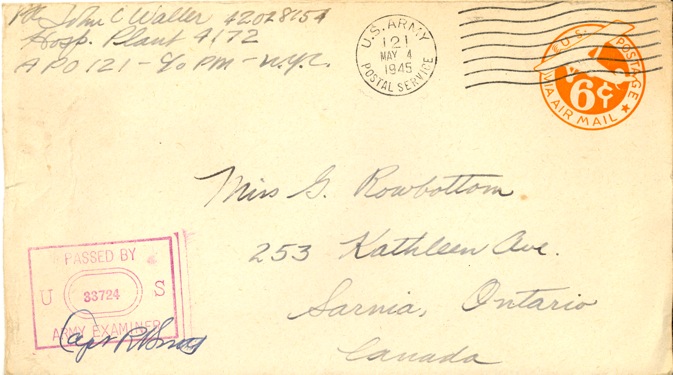 Pvt. John C Waller 42028154
Hosp. Plant 4172
APO 121 - c/o PM - N.Y.C.
U.S. ARMY
121
MAY 4
1945
POSTAL SERVICE
U.S. POSTAGE
6¢
VIA AIR MAIL
Miss G. Rowbottom
253 Kathleen Ave.
Sarnia, Ontario
Canada
PASSED BY
U 33724 S
ARMY EXAMINER
Capt